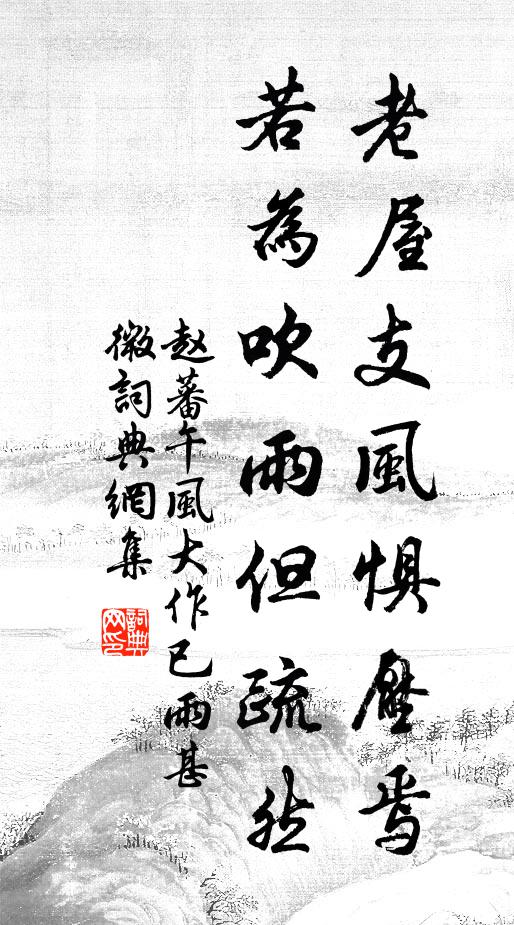 老屋支風惧壓焉
若為吹雨但疏然
赵蕃午風大作已雨甚
微詞典網集
詞典網印